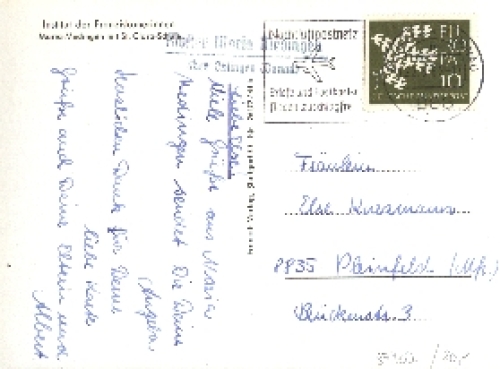 Institut der Franziskanerinnen
Maria Medingen mit St. Clara-Schule
Kloster Maria Medingen
über Dillingen Donau
Nachtluftpostnetz
Briefe und Postkarten
EUROPA
10
DEUTSCHE BUNDESPOST
Liebe Else
Viele Grüße aus Maria
Medingen sendet Dir Deine
Angela
Herzlichen Dank für Deine
liebe Karte
Grüße auch Deine Eltern und
Albert
Fräulein
Else
8835 Pleinfeld (Mfr.)
Brückenstr. 3